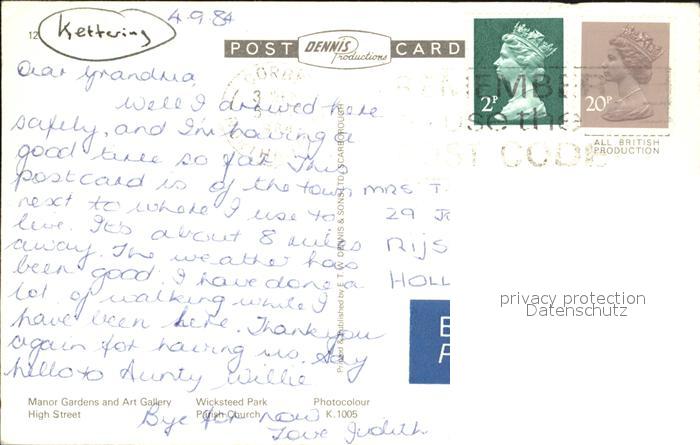 12
Kettering
4.9.84
POST DENNIS Productions CARD
Dear Grandma,
Well I arrived here
safely, and I'm having a
good time so far. This
postcard is of the town
next to where I use to
live. It's about 8 miles
away. The weather has
been good. I have done a
lot of walking while I
have been here. Thankyou
again for having us. Say
hello to Aunty Willie
Bye for now
Love Judith
2P
20P
REMEMBER
use the
POST CODE
ALL BRITISH
PRODUCTION
MRS T.
29
RIJS
HOLL
privacy protection
Datenschutz
Printed & published by E. T. W. DENNIS & SONS LTD., SCARBOROUGH
Manor Gardens and Art Gallery Wicksteed Park Photocolour
High Street Parish Church K.1005